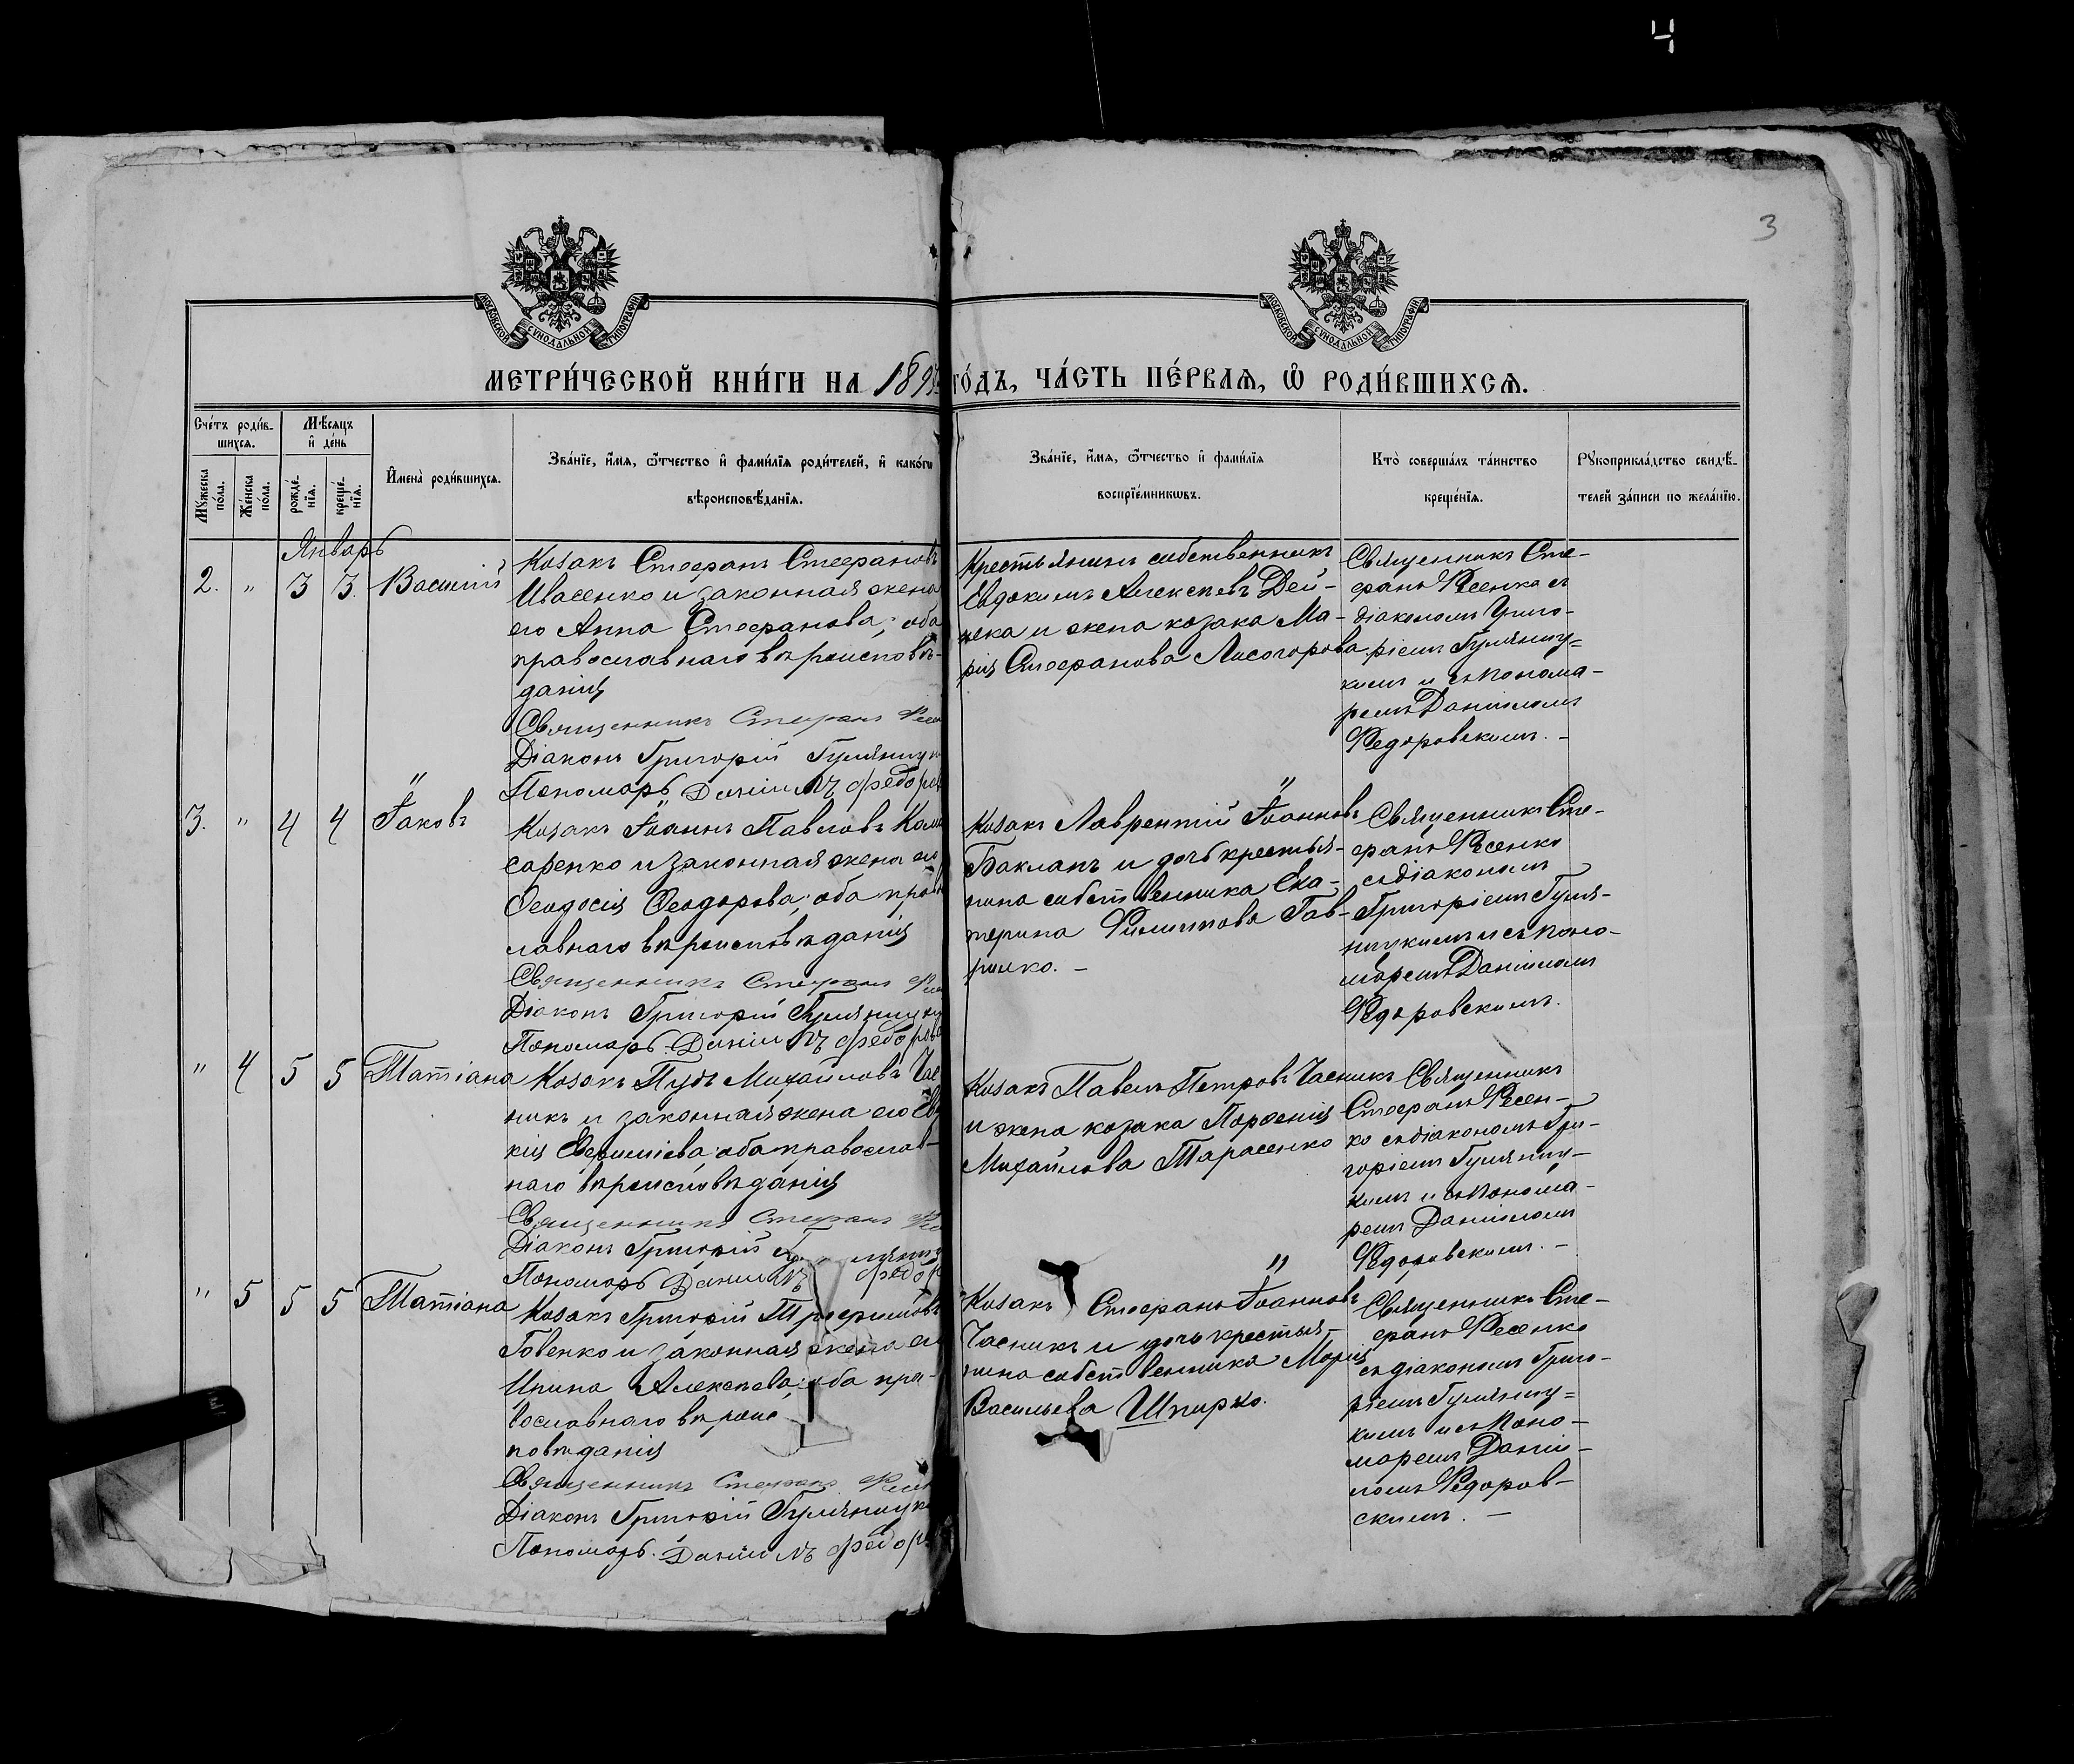 4
3
МОСКОВСКОЙ СѴНОДАЛЬНОЙ ТИПОГРАФІИ
МОСКОВСКОЙ СѴНОДАЛЬНОЙ ТИПОГРАФІИ
МЕТРИ́ЧЕСКОЙ КНИ́ГИ НА 189 ГО́ДЪ, ЧА́СТЬ ПЕ́РВАѦ, Ѽ РОДИ́ВШИХСѦ.
Сче́тъ роди́в-
шихсѧ.
Мꙋ́жеска по́ла.
Же́нска по́ла.
Мѣ́сѧцъ
и҆ де́нь
рожде́-
нїѧ.
креще́-
нїѧ.
И҆мена̀ роди́вшихсѧ.
Зва́нїе, и҆́мѧ, ѻ҆́тчество и҆ фами́лїѧ роди́телей, и҆ како́гѡ
вѣроисповѣ́данїѧ.
Зва́нїе, и҆́мѧ, ѻ҆́тчество и҆ фами́лїѧ
воспрїе́мникѡвъ.
Кто̀ соверша́лъ та́инство
креще́нїѧ.
Рꙋкоприкла́дство свидѣ́-
телей за́писи по жела́нїю.
Январь
2. " 3 3. Василій
Козакъ Стефанъ Стефановъ
Ивасенко и законная жена
его Анна Стефанова; оба
православнаго вѣроисповѣ-
данія
Священникъ Стефанъ
Діаконъ Григорій Гуляницк
Пономарь Даніилъ Федоров
Крестьянинъ собственникъ
Евдокимъ Алексѣевъ Дей-
нека и жена козака Ма-
рія Стефанова Лисогорова
Священникъ Сте-
фанъ Фесенко съ
діакономъ Григо-
ріемъ Гуляниц=
кимъ и съ понома-
ремъ Даніиломъ
Федоровскимъ. -
"
3. " 4 4 Іаковъ
Козакъ Іоаннъ Павловъ Коми
саренко и законная жена его
Феодосія Феодорова; оба право
славнаго вѣроисповѣданія
Священникъ Стефанъ
Діаконъ Григорій Гуляницк
Пономарь Даніилъ Федоров
"
Козакъ Лаврентій Іоанновъ
Бакланъ и дочь крестья-
нина собственника Ека-
терина Филиппова Гав-
рилко. -
Священникъ Сте-
фанъ Фесенко
съ діакономъ
Григоріемъ Гуля-
ницкимъ и съ поно-
маремъ Даніиломъ
Федоровскимъ.
" 4 5 5 Татіана
Козакъ Пудъ Михайловъ Час
никъ и законная жена его Евдо
кія Евфиміева; оба православ-
наго вѣроисповѣданія
Священникъ Стефанъ
Діаконъ Григорій Гуляниц
Пономарь Даніилъ Федор
Козакъ Павелъ Петровъ Часникъ
и жена козака Порфенія
Михайлова Тарасенко
Священникъ
Стефанъ Фесен-
ко съ діакономъ Гри-
горіемъ Гуляниц-
кимъ и съ понома-
ремъ Даніиломъ
Федоровскимъ. -
" 5 5 5 Татіана
Козакъ Григорій Трофимовъ
Говенко и законная жена его
Ирина Алексѣева; оба пра-
вославнаго вѣроис
повѣданія
Священникъ Стефанъ
Діаконъ Григорій Гуляницк
Пономарь. Даніилъ Федор
"
Козакъ Стефанъ Іоанновъ
Часникъ и дочь крестья-
нина собственника Марія
Васильева Шпирко.
Священникъ Сте-
фанъ Фесенко
съ діакономъ Григо-
ріемъ Гуляниц=
кимъ и съ поно-
маремъ Даніи-
ломъ Федоров-
скимъ. -